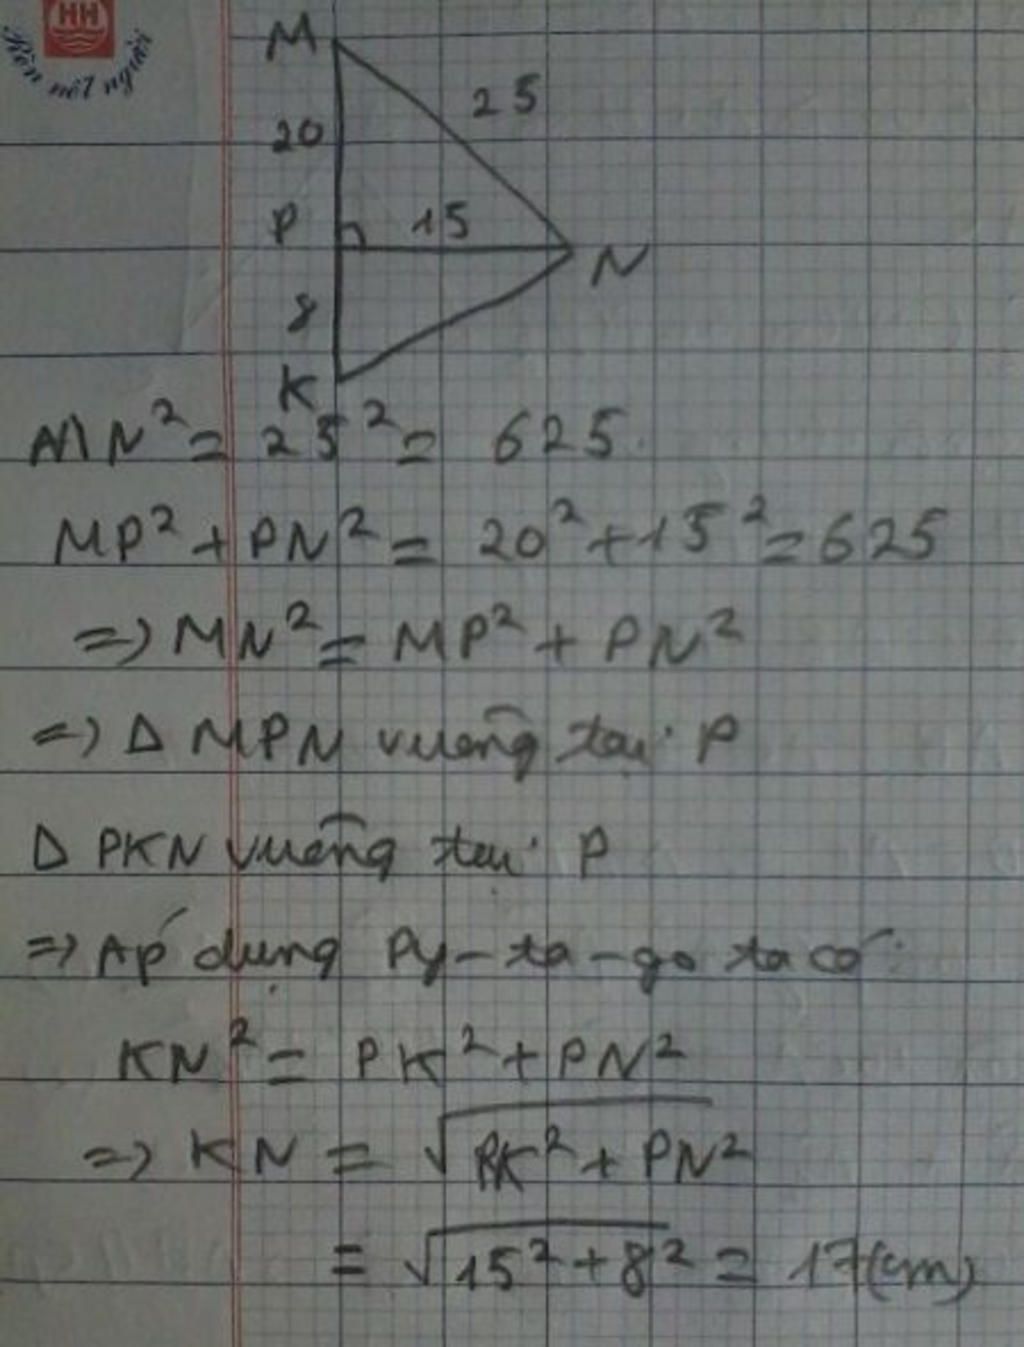 HH
Rèn nết người
M
25
20
P
15
N
8
K
MN² = 25² = 625.
MP² + PN² = 20² + 15² = 625
=> MN² = MP² + PN²
=> Δ MPN vuông tại P
Δ PKN vuông tại P
=> Áp dụng Py-ta-go ta có:
KN² = PK² + PN²
=> KN = √PK² + PN²
= √15² + 8² = 17(cm)